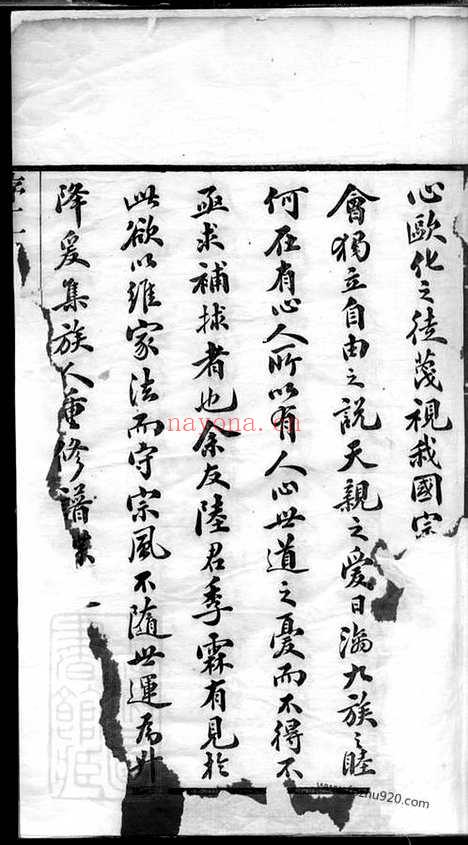 心歐化之徒蔑視我國宗
會獨立自由之說天親之愛日漓九族之睦
何在有心人所以有人心世道之憂而不得不
亟求補捄者也余友陸君季霖有見於
此欲以維家法而守宗風不隨世運為升
降爰集族人重修譜
序
nayona.cn
fozhu920.com